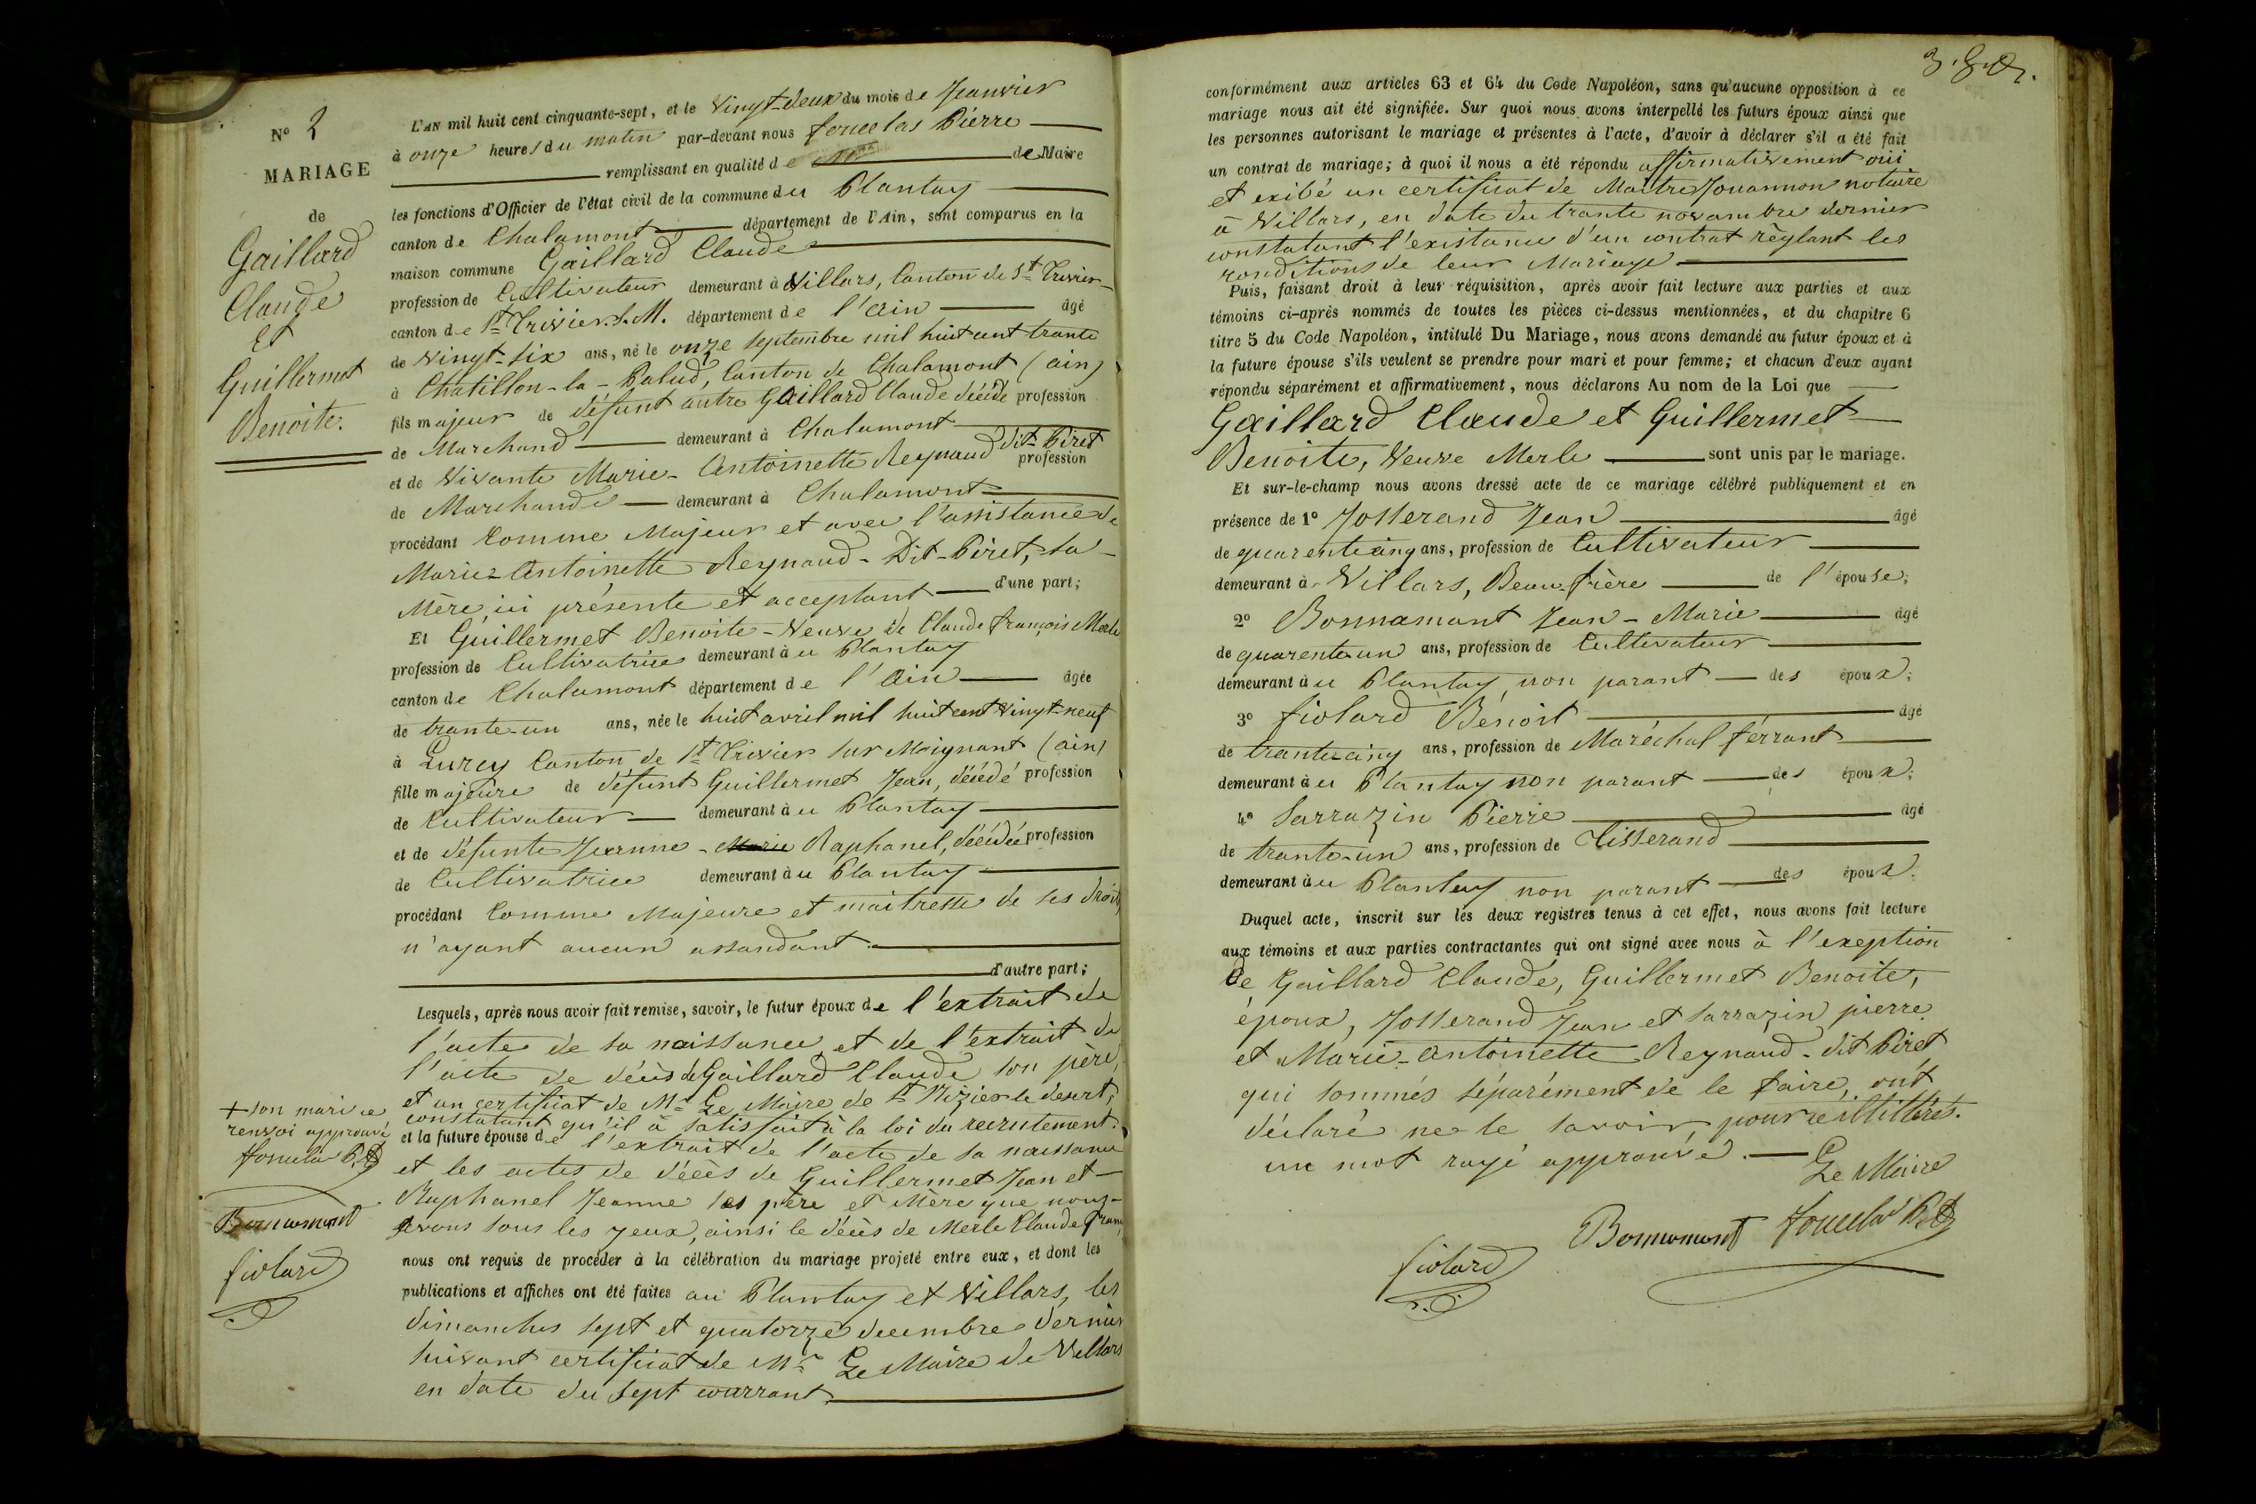 N° 2
MARIAGE
de
Gaillard
Claude
Et
Guillermet
Benoite.
L'AN mil huit cent cinquante-sept, et le Vingt-deux du mois de Janvier
à onze heures du matin par-devant nous Pierre
remplissant en qualité de de Maire
les fonctions d'Officier de l'état civil de la commune du Plantay
canton de Chalamont département de l'Ain, sont comparus en la
maison commune Gaillard Claude
profession de Cultivateur demeurant à Villars, Canton de St Trivier-
canton de St Trivier. S. M. département de l'Ain âgé
de Vingt-six ans, né le onze septembre mil huit cent trante
à Chatillon-la-Palud, Canton de Chalamont (ain)
fils majeur de défunt autre Gaillard Claude décédé profession
de Marchand demeurant à Chalamont
et de Vivante Marie-Antoinette Reynaud dit-Piret profession
de Marchande demeurant à Chalamont
procédant Comme Majeur et avec l'assistance de
Marie-Antoinette Reynaud-Dit-Piret, sa
Mère, ici présente et acceptant d'une part;
Et Guillermet Benoite-Veuve de Claude françois Merle
profession de Cultivatrice demeurant au Plantay
canton de Chalamont département de l'Ain âgée
de trante-un ans, née le huit avril mil huit cent Vingt-neuf
à Lurcy Canton de St Trivier sur Moignant (ain)
fille majeure de défunt Guillermet Jean, décédé profession
de Cultivateur demeurant au Plantay
et de défunte Jeanne-Marie Raphanel, décédée profession
de Cultivatrice demeurant au Plantay
procédant Comme Majeure et maitresse de ses droits
n'ayant aucun assandant.
d'autre part;
Lesquels, après nous avoir fait remise, savoir, le futur époux de l'extrait de
l'acte de sa naissance et de l'extrait de
l'acte de décès de Gaillard Claude son père,
et un certificat de Mr Le Maire de St Nizier le desert,
constatant qu'il a satisfait à la loi du recrutement.
et la future épouse de l'extrait de l'acte de sa naissance
et les actes de décès de Guillermet Jean et
Raphanel Jeanne ses père et Mère que nous
avons sous les yeux, ainsi le décès de Merle Claude fran,
nous ont requis de procéder à la célébration du mariage projeté entre eux, et dont les
publications et affiches ont été faites au Plantay et Villars, les
dimanches sept et quatorze decembre dernier
suivant certificat de Mr Le Maire de Villars
en date du sept courrant.
+ son mari ce
renvoi approuvé
Bonnamant
fiolard
conformément aux articles 63 et 64 du Code Napoléon, sans qu'aucune opposition à ce
mariage nous ait été signifiée. Sur quoi nous avons interpellé les futurs époux ainsi que
les personnes autorisant le mariage et présentes à l'acte, d'avoir à déclarer s'il a été fait
un contrat de mariage; à quoi il nous a été répondu affirmativement oui
et exibé un certificat de Maitre Jouannon notaire
à Villars, en date du trante novambre dernier
constatant l'existance d'un contrat règlant les
conditions de leur Mariage
Puis, faisant droit à leur réquisition, après avoir fait lecture aux parties et aux
témoins ci-après nommés de toutes les pièces ci-dessus mentionnées, et du chapitre 6
titre 5 du Code Napoléon, intitulé Du Mariage, nous avons demandé au futur époux et à
la future épouse s'ils veulent se prendre pour mari et pour femme; et chacun d'eux ayant
répondu séparément et affirmativement, nous déclarons Au nom de la Loi que
Gaillard Claude et Guillermet
Benoite, Veuve Merle sont unis par le mariage.
Et sur-le-champ nous avons dressé acte de ce mariage célébré publiquement et en
présence de 1° Josserand Jean âgé
de quarente cinq ans, profession de Cultivateur
demeurant à Villars, Beau-frère de l'épouse;
2° Bonnamant Jean-Marie âgé
de quarente-un ans, profession de Cultivateur
demeurant au Plantay, non parant des époux;
3° fiolard Benoit âgé
de trante-cinq ans, profession de Maréchal ferrant
demeurant au Plantay non parant des époux;
4° Sarrazin Pierre âgé
de trante-un ans, profession de Tisserand
demeurant au Plantay non parant des époux.
Duquel acte, inscrit sur les deux registres tenus à cet effet, nous avons fait lecture
aux témoins et aux parties contractantes qui ont signé avec nous à l'exeption
de Gaillard Claude, Guillermet Benoite,
époux, Josserand Jean et Sarrazin pierre
et Marie-Antoinette Reynaud-dit Piret
qui sommés séparément de le faire, ont
déclaré ne le savoir, pour illittérés.
un mot rayé approuvé.
Le Maire
Bonnamant
fiolard